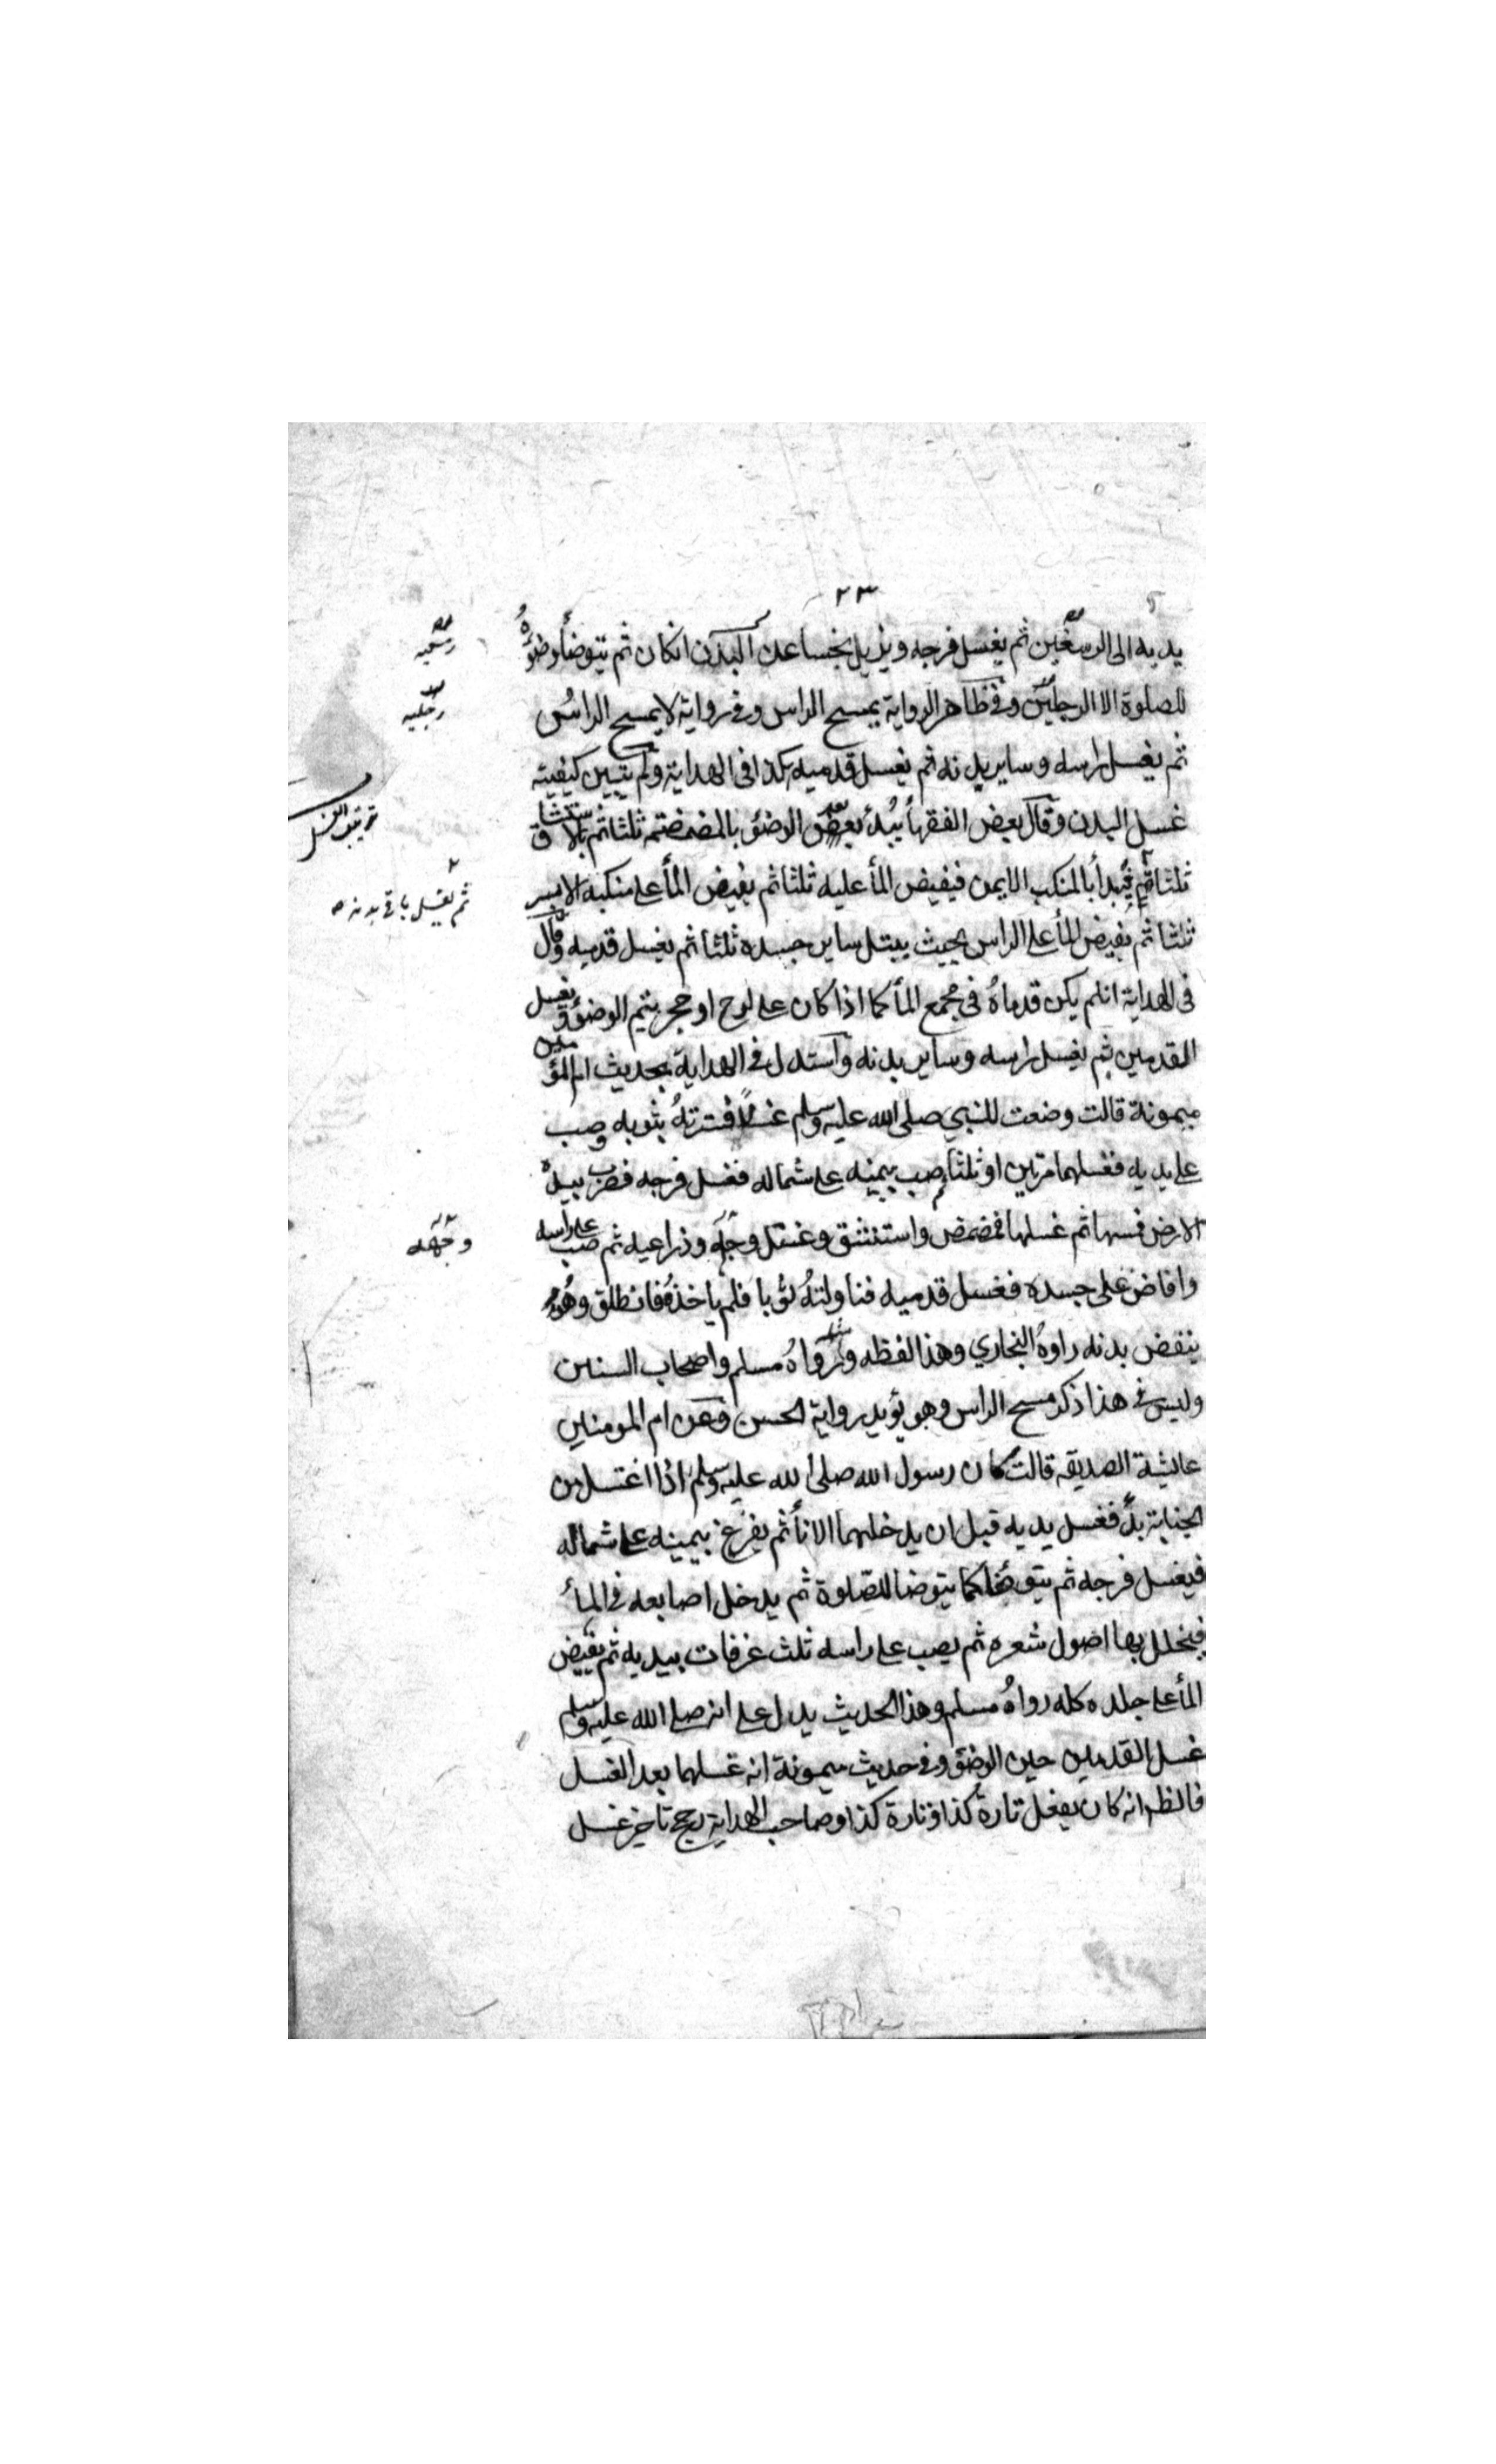 ٢٣
يديه الى الرسغين ثم يغسل فرجه ويزيل نجسا عن البدن انكان ثم يتوضأ وضوءه
للصلوة الا الرجلين وفي ظاهر الرواية يمسح الراس وفي رواية لا يمسح الراس
ثم يغسل راسه وساير بدنه ثم يغسل قدميه كذا في الهداية ولم يتبين كيفيته
غسل البدن وقال بعض الفقهأ يبدأ بعد الوضؤ بالمضمضته ثلثا ثم بالاستنشاق
ثلثا ثم يبدأ بالمنكب الايمن فيفيض المأ عليه ثلثا ثم يفيض المأ على منكبه الايسر
ثلثا ثم يفيض المأ على الراس بحيث يبتل ساير جسده ثلثا ثم يغسل قدميه وقال
في الهداية انلم يكن قدماه في مجمع المأ كما اذا كان على لوح او حجر يتيم الوضؤ ويغسل
القدمين ثم يغسل راسه وساير بدنه واستدل في الهداية بحديث ام المؤمنين
ميمونة قالت وضعت للنبي صلى الله عليه وسلم غسلا فسترته بثوبه وصب
على يديه فغسلهما مرتين او ثلثا ثم صب بيمينه على شماله فغسل فرجه فضرب بيده
الارض فمسها ثم غسلها فمضمض واستنشق وغسل وجهه وذراعيه ثم صب على راسه
وافاض على جسده فغسل قدميه فناولته ثوبا فلم ياخذه فانطلق وهو
ينفض بدنه راوه البخاري وهذا لفظه ورواه مسلم واصحاب السنين
وليس في هذا ذكر مسح الراس وهو يؤيد رواية الحسن وعن ام المومنين
عائشة الصديقه قالت كان رسول الله صلى الله عليه وسلم اذا اغتسل من
الجنابة بدأ فغسل يديه قبل ان يدخلهما الانأ ثم يفرغ بيمينه على شماله
فيغسل فرجه ثم يتوضا كما يتوضا للصلوة ثم يدخل اصابعه في المأ
فيخلل بها اصول شعره ثم يصب على راسه ثلث غرفات بيديه ثم يفيض
المأ على جلده كله رواه مسلم وهذا الحديث يدل على انه صلى الله عليه وسلم
غسل القدمين حين الوضؤ وفي حديث ميمونة انه غسلهما بعد الغسل
فالظر انه كان يفعل تارة كذا وتارة كذا وصاحب الهداية رجح تاخير غسل
رسغيه
رجليه
ترتيب الغسل
ثم يغسل باقي بدنه
وجهه